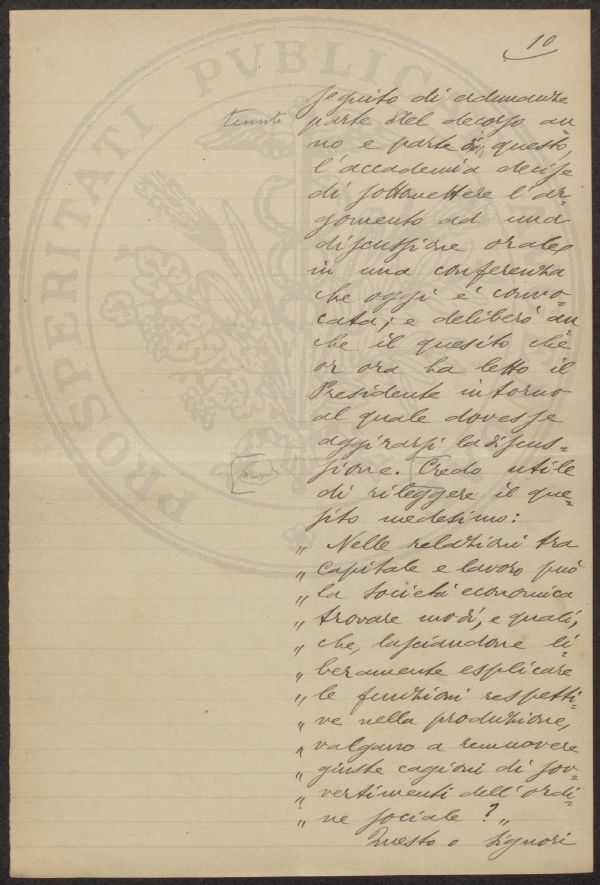 10
seguito di adunanze
tenute parte del decorso an-
no e parte di questo,
l'accademia decise
di sottomettere l'ar-
gomento ad una
discussione orale,
in una conferenza
che oggi è convo-
cata; e deliberò an
che il quesito che
or ora ha letto il
Presidente intorno
al quale dovesse
aggirarsi la discus-
sione. Credo utile
di rileggere il que-
sito medesimo:
„ Nelle relazioni tra
„ capitale e lavoro può
„ la società economica
„ trovare modi, e quali,
„ che, lasciandone li-
„ beramente esplicare
„ le funzioni respetti-
„ ve nella produzione,
„ valgano a remuovere
„ giuste cagioni di sov-
„ vertimenti dell'ordi-
„ ne sociale? „
Questo o Signori
PROSPERITATI PVBLIC